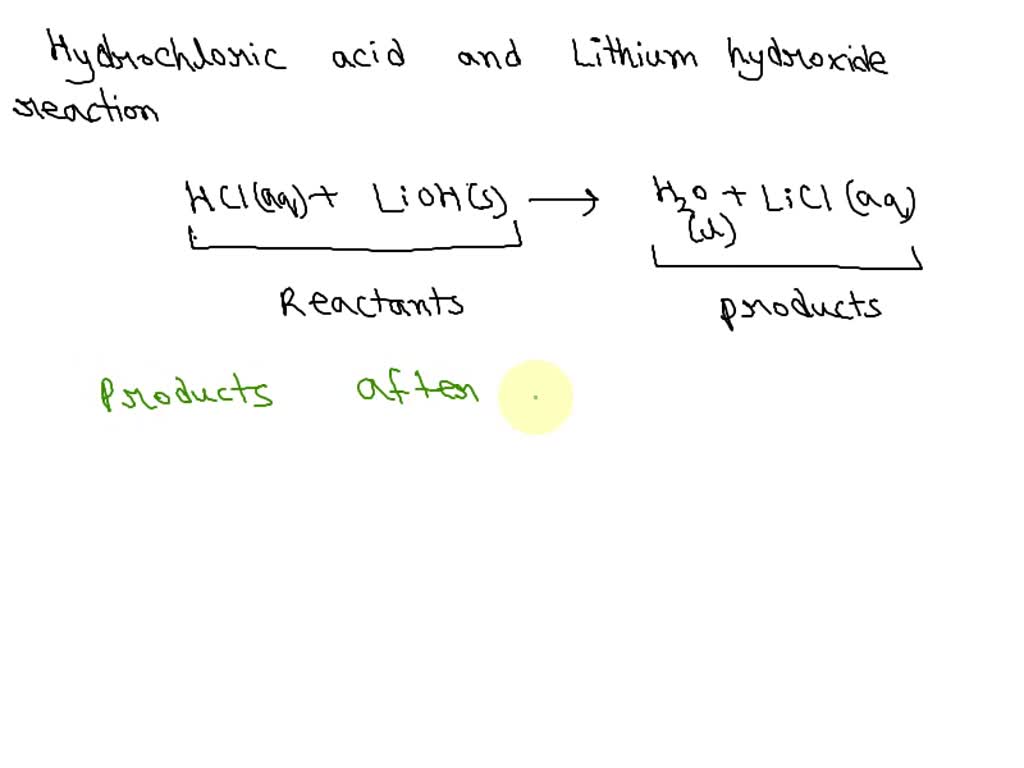 Hydrochloric acid and Lithium hydroxide
reaction
HCl(aq) + LiOH(s) ⟶ H₂O(l) + LiCl (aq)
Reactants products
Products after